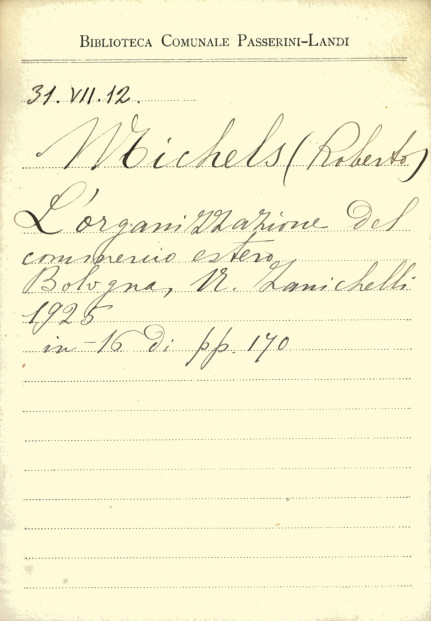 BIBLIOTECA COMUNALE PASSERINI-LANDI
31.VII.12.
Michels (Roberto)
L'organizzazione del
commercio estero
Bologna, N. Zanichelli
1925
in-16 di pp. 170